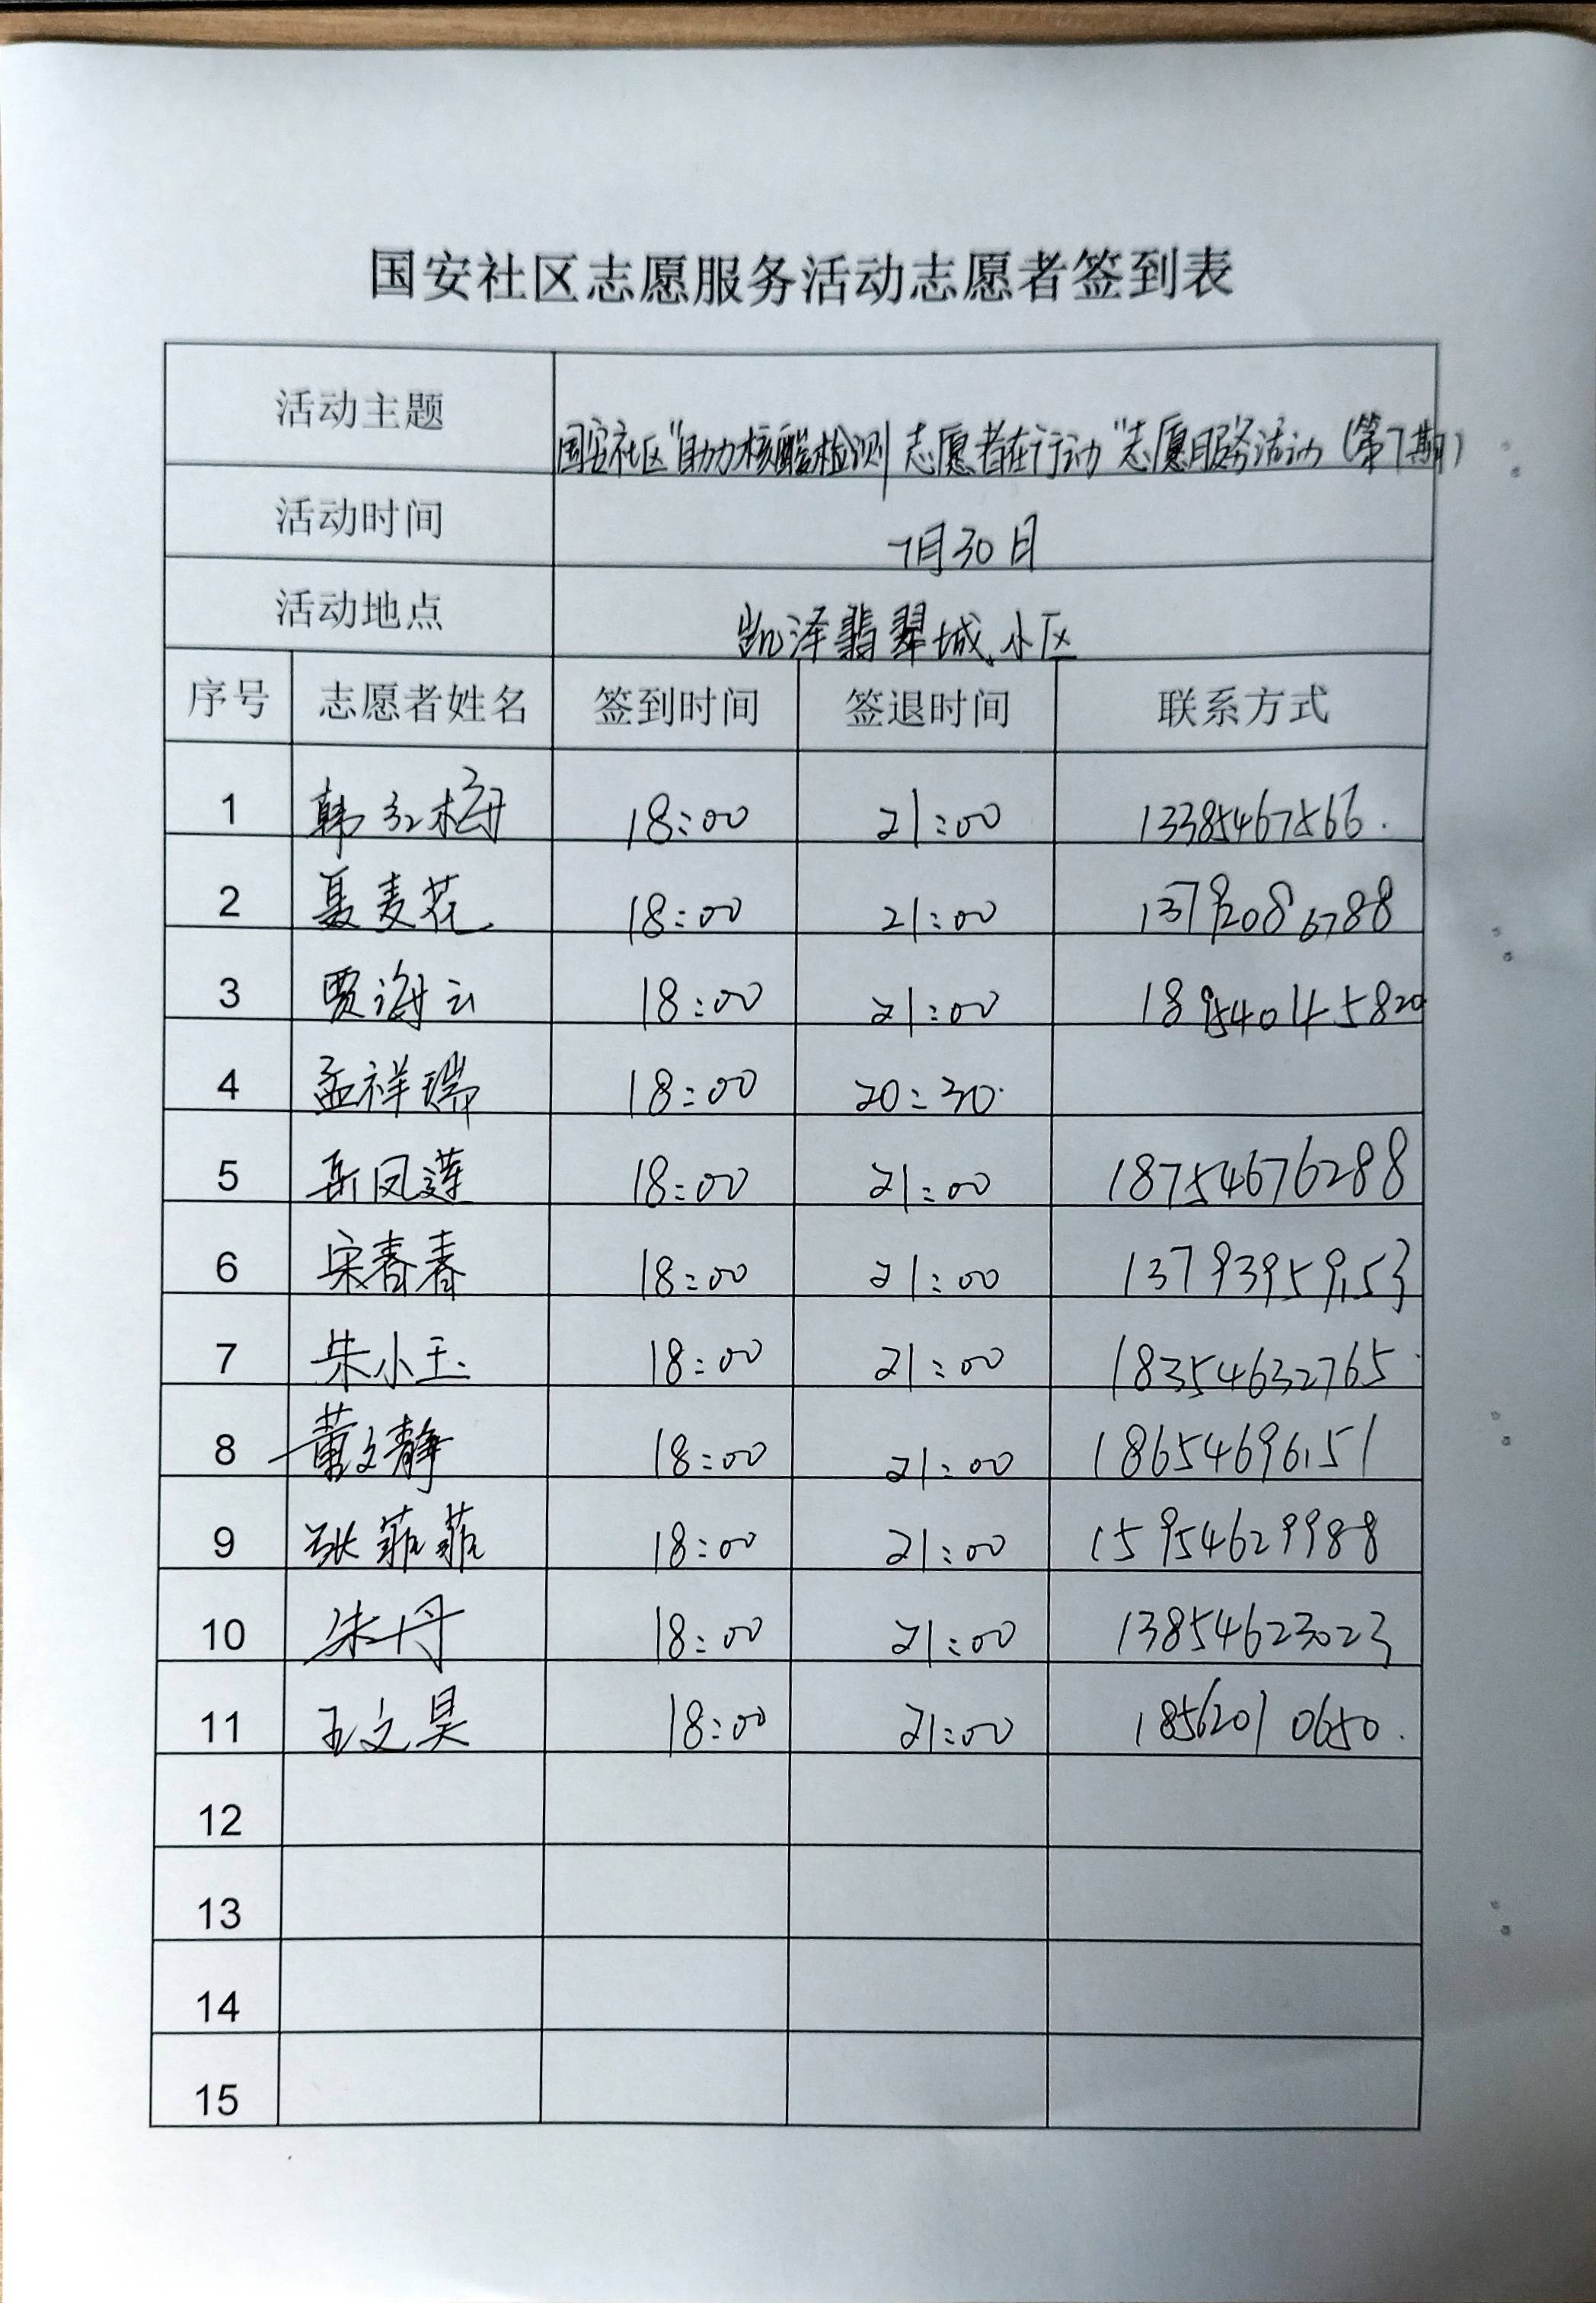 国安社区志愿服务活动志愿者签到表
活动主题 国安社区"助力核酸检测 志愿者在行动"志愿服务活动(第7期)
活动时间 7月30日
活动地点 凯泽翡翠城小区
序号 志愿者姓名 签到时间 签退时间 联系方式
1 韩红梅 18:00 21:00 13385467566.
2 聂麦花 18:00 21:00 13792086788
3 贾海云 18:00 21:00
4 孟祥瑞 18:00 20:30
5 岳凤莲 18:00 21:00 18754676288
6 宋春春 18:00 21:00 13793959153
7 朱小玉 18:00 21:00 18354632765
8 董文静 18:00 21:00 18654696151
9 张菲菲 18:00 21:00 15954629988
10 朱丹 18:00 21:00 13854623023
11 王文昊 18:00 21:00 18562010650.
12
13
14
15